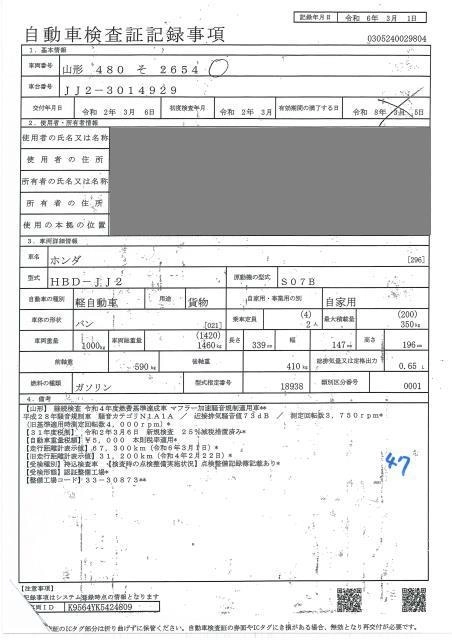 記録年月日 令和 6年 3月 1日
自動車検査証記録事項
0305240029804
1. 基本情報
車両番号 山形 480 そ 2654
車台番号 JJ2-3014929
交付年月日 令和 2年 3月 6日 初度検査年月 令和 2年 3月 有効期間の満了する日 令和 8年 3月 5日
2. 使用者・所有者情報
使用者の氏名又は名称
使用者の住所
所有者の氏名又は名称
所有者の住所
使用の本拠の位置
3. 車両詳細情報
車名 ホンダ [296]
型式 HBD-JJ2 原動機の型式 S07B
自動車の種別 軽自動車 用途 貨物 自家用・事業用の別 自家用
車体の形状 バン [021] 乗車定員 (4) 2人 最大積載量 (200) 350kg
車両重量 1000kg 車両総重量 (1420) 1460kg 長さ 339cm 幅 147cm 高さ 196cm
前軸重 590kg 後軸重 410kg 総排気量又は定格出力 0.65 L
燃料の種類 ガソリン 型式指定番号 18938 類別区分番号 0001
4. 備考
[山形] 継続検査 令和4年度燃費基準達成車 マフラー加速騒音規制適用車**
平成28年騒音規制車 騒音カテゴリN1A1A / 近接排気騒音値73dB / 測定回転数3,750rpm*
(旧基準適用時測定回転数4,000rpm)*
[31年度税制] 令和2年3月6日 新規検査 25%減税措置済み*
[自動車重量税額] ¥5,000 本則税率適用*
[走行距離計表示値] 67,300km (令和6年3月1日)*
[旧走行距離計表示値] 31,200km (令和4年2月22日)*
[受検種別] 持込検査車 *[検査時の点検整備実施状況] 点検整備記録簿記載あり*
[受検形態] 認証整備工場*
[整備工場コード] 33-30873**
47
[注意事項]
記録事項はシステム登録時点の情報となります
車両ID K9564YK5424809
証のICタグ部分は折り曲げずに保管ください。自動車検査証の券面やICタグにき損がある場合、無効となり再交付が必要です。